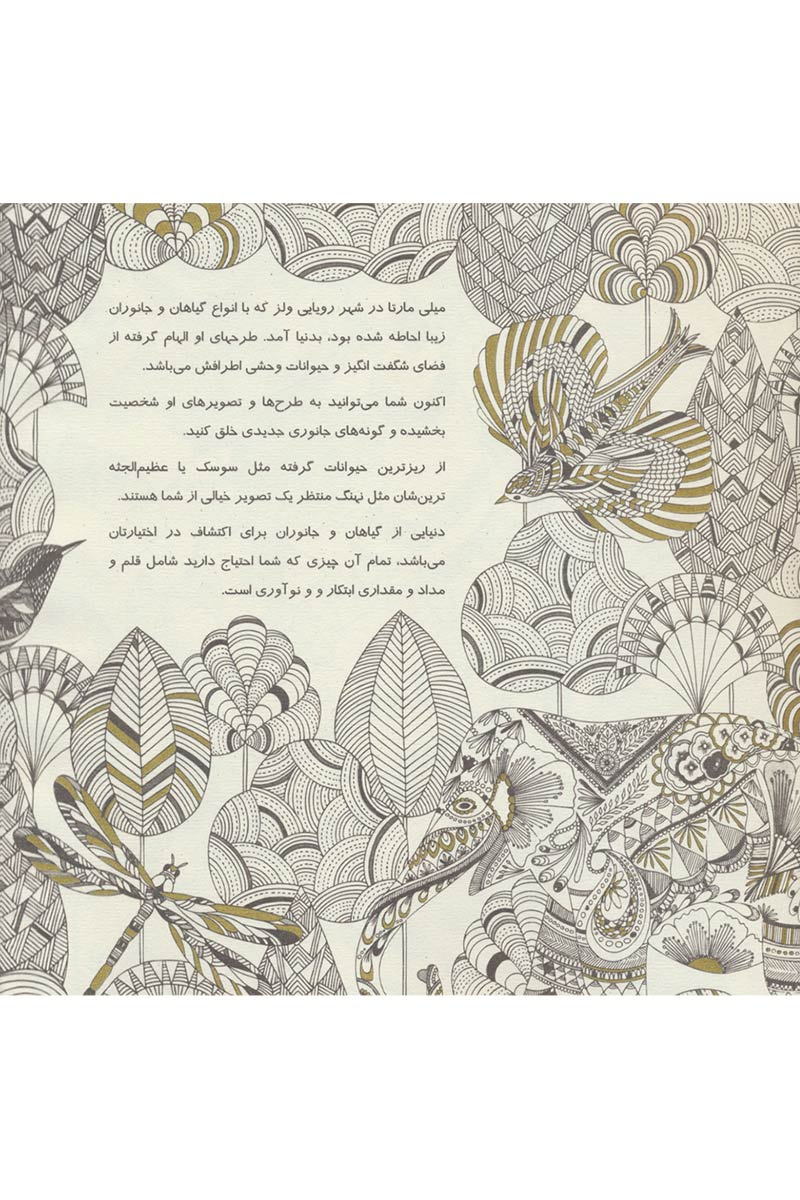 میلی مارتا در شهر رویایی ولز که با انواع گیاهان و جانوران
زیبا احاطه شده بود، بدنیا آمد. طرحهای او الهام گرفته از
فضای شگفت انگیز و حیوانات وحشی اطرافش می‌باشد.
اکنون شما می‌توانید به طرح‌ها و تصویرهای او شخصیت
بخشیده و گونه‌های جانوری جدیدی خلق کنید.
از ریزترین حیوانات گرفته مثل سوسک یا عظیم‌الجثه
ترین‌شان مثل نهنگ منتظر یک تصویر خیالی از شما هستند.
دنیایی از گیاهان و جانوران برای اکتشاف در اختیارتان
می‌باشد، تمام آن چیزی که شما احتیاج دارید شامل قلم و
مداد و مقداری ابتکار و و نوآوری است.